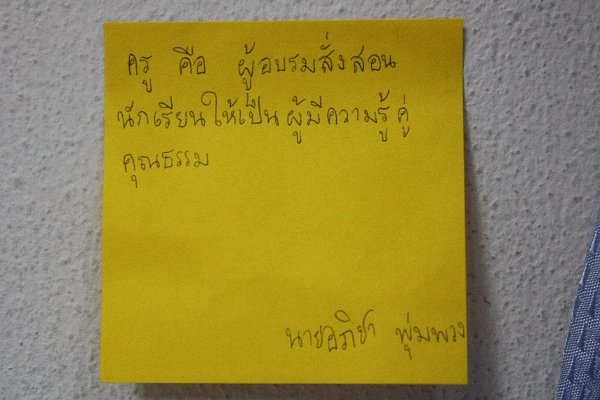 ครู คือ ผู้อบรมสั่งสอน
นักเรียนให้เป็น ผู้มีความรู้ คู่
คุณธรรม
นายอภิชา พุ่มพวง